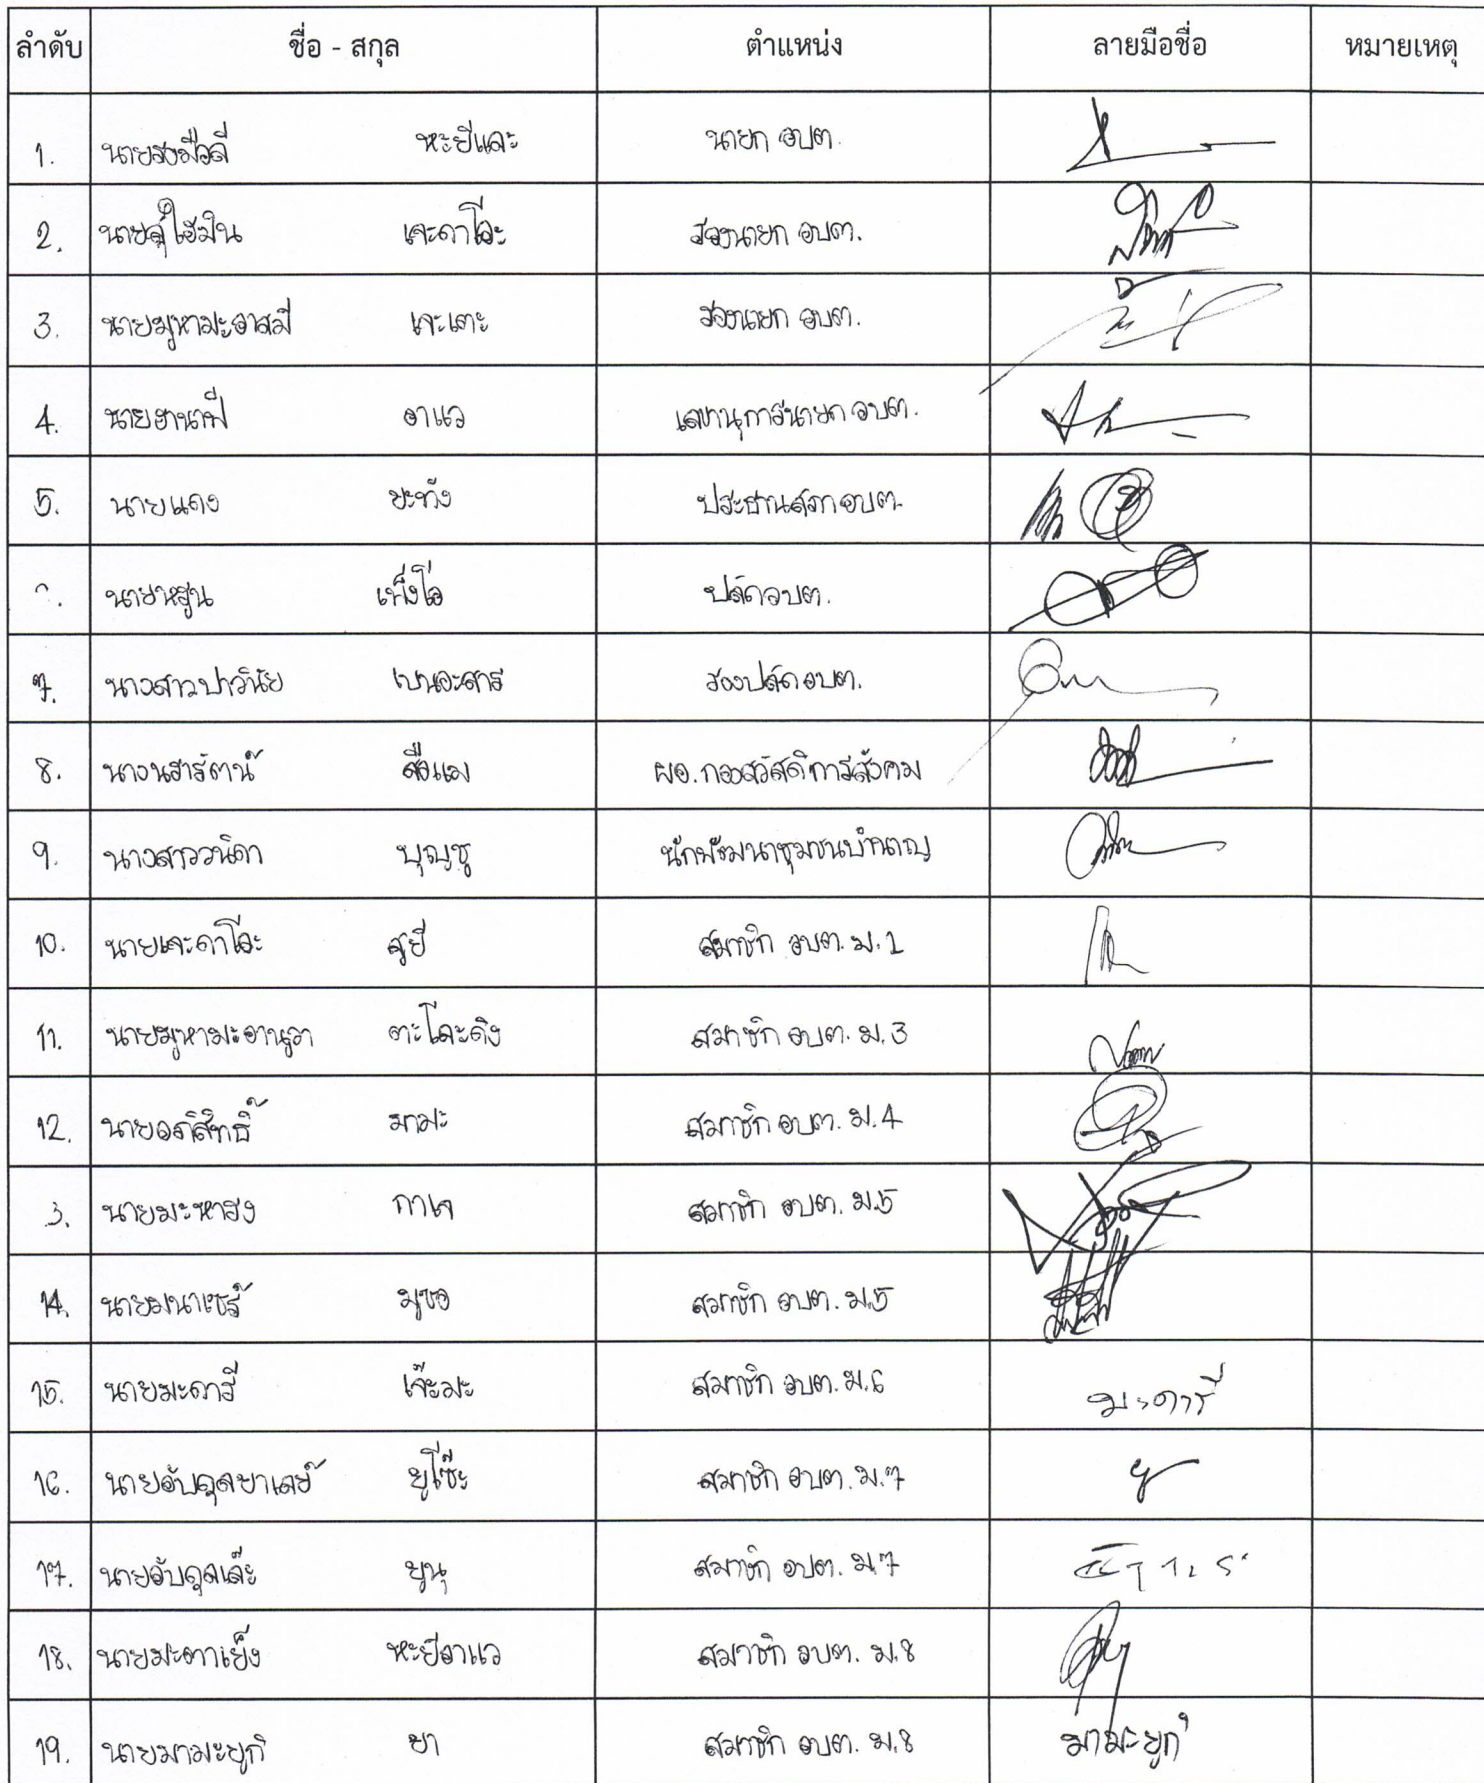 ลำดับ ชื่อ - สกุล ตำแหน่ง ลายมือชื่อ หมายเหตุ
1. นายรอมือลี หะยีและ นายก อบต.
2. เจะดาโอะ รองนายก อบต.
3. นายมูหามะอาสมี เจะเตะ รองนายก อบต.
4. นายฮานาฟี อาแว เลขานุการนายก อบต.
5. นายแดง ยะทัง ประธานสภา อบต.
นายหรูน เพ็งโอ ปลัด อบต.
7. นางสาวปาวินัย เบนอะสาร รองปลัด อบต.
8. นางนรารัตน์ สือแม ผอ.กองสวัสดิการสังคม
9. นางสาววนิดา บุญชู นักพัฒนาชุมชนชำนาญ
10. นายเจะดาโอะ สุยี สมาชิก อบต. ม.1
11. นายมูหามะอานูวา ตะโละดิง สมาชิก อบต. ม.3
12. นายอภิสิทธิ์ มามะ สมาชิก อบต. ม.4
3. นายมะหาธง กาเจ สมาชิก อบต. ม.5
14. นายมนาเซร์ มูซอ สมาชิก อบต. ม.5
15. นายมะดารี เจ๊ะมะ สมาชิก อบต. ม.6 มะดารี
16. นายอับดุลยาเลย์ ยูโซ๊ะ สมาชิก อบต. ม.7
17. นายอับดุลเล๊ะ ยูนุ สมาชิก อบต. ม.7
18. นายมะตาเย็ง หะยีอาแว สมาชิก อบต. ม.8
19. นายมามะยูกี ยา สมาชิก อบต. ม.8 มามะยูกี